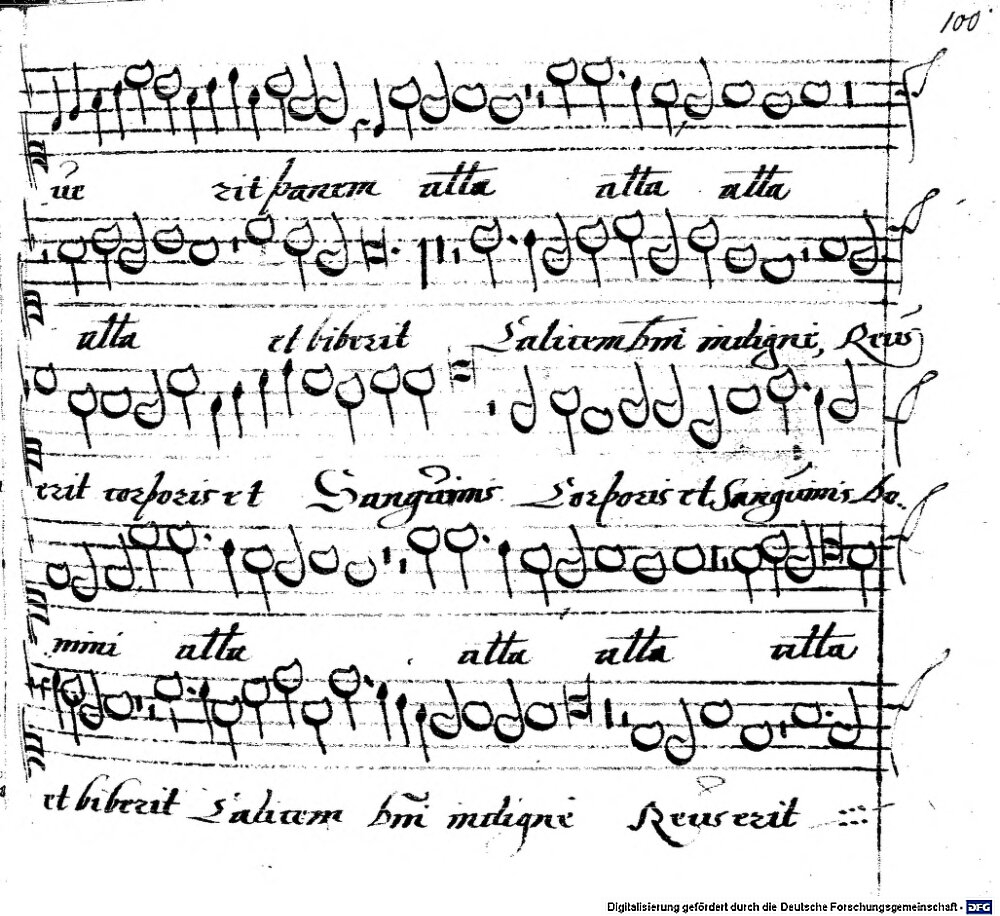 100
ue rit panem alla alla alla
alla et biberit Calicem dm̄i indigne, Reus
erit corporis et Sanguinis Corporis et Sanguinis do.
mini alla alla alla alla
et biberit Calicem dm̄i indigne Reus erit
Digitalisierung gefördert durch die Deutsche Forschungsgemeinschaft - DFG